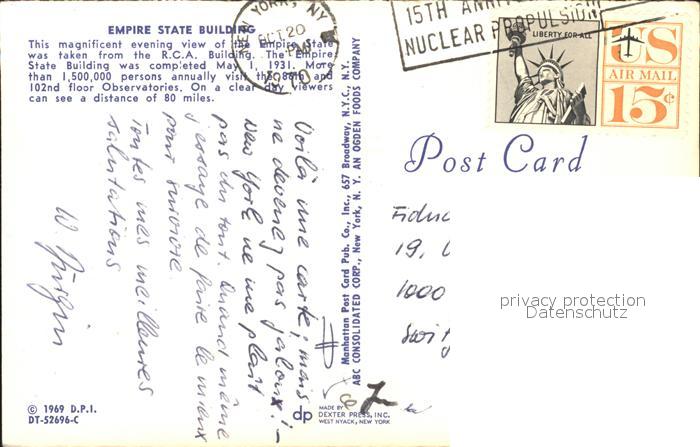 EMPIRE STATE BUILDING
This magnificent evening view of the Empire State
was taken from the R.C.A. Building. The Empire
State Building was completed May 1, 1931. More
than 1,500,000 persons annually visit the 86th and
102nd floor Observatories. On a clear day viewers
can see a distance of 80 miles.
NEW YORK, NY
OCT 20
PM
1970
15TH ANNI
NUCLEAR PROPULSION
LIBERTY FOR ALL
US
AIR MAIL
15¢
Post Card
Voilà une carte; mais
ne devenez pas jaloux! –
New York ne me plaît
pas du tout. Quand même
j'essaye de faire le mieux
pour survivre.
Toutes mes meilleures
salutations
W.
Manhattan Post Card Pub. Co., Inc., 657 Broadway, N.Y.C., N.Y.
ABC CONSOLIDATED CORP., New York, N. Y. AN OGDEN FOODS COMPANY
Fiduc
19,
1000
privacy protection
Datenschutz
© 1969 D.P.I.
DT-52696-C
dp
MADE BY
DEXTER PRESS, INC.
WEST NYACK, NEW YORK